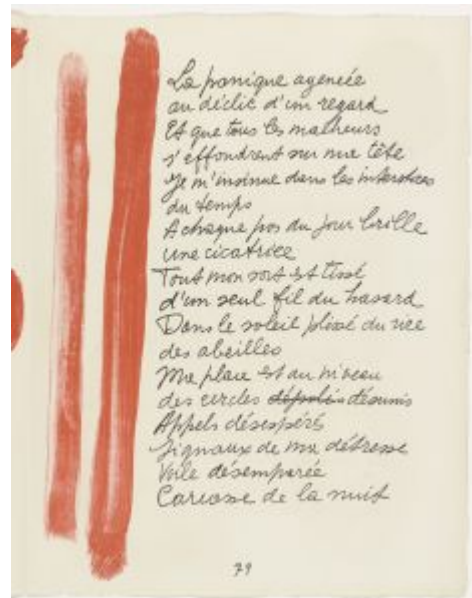 La panique agencée
au déclic d'un regard
Et que tous les malheurs
s'effondrent sur ma tête
Je m'insinue dans les interstices
du temps
A chaque pas du jour brille
une cicatrice
Tout mon sort est tissé
d'un seul fil du hasard
Dans le soleil plissé du
des abeilles
Ma place est au niveau
des cercles désunis
Appels désespérés
Signaux de ma détresse
Voile désemparée
Carcasse de la nuit
79